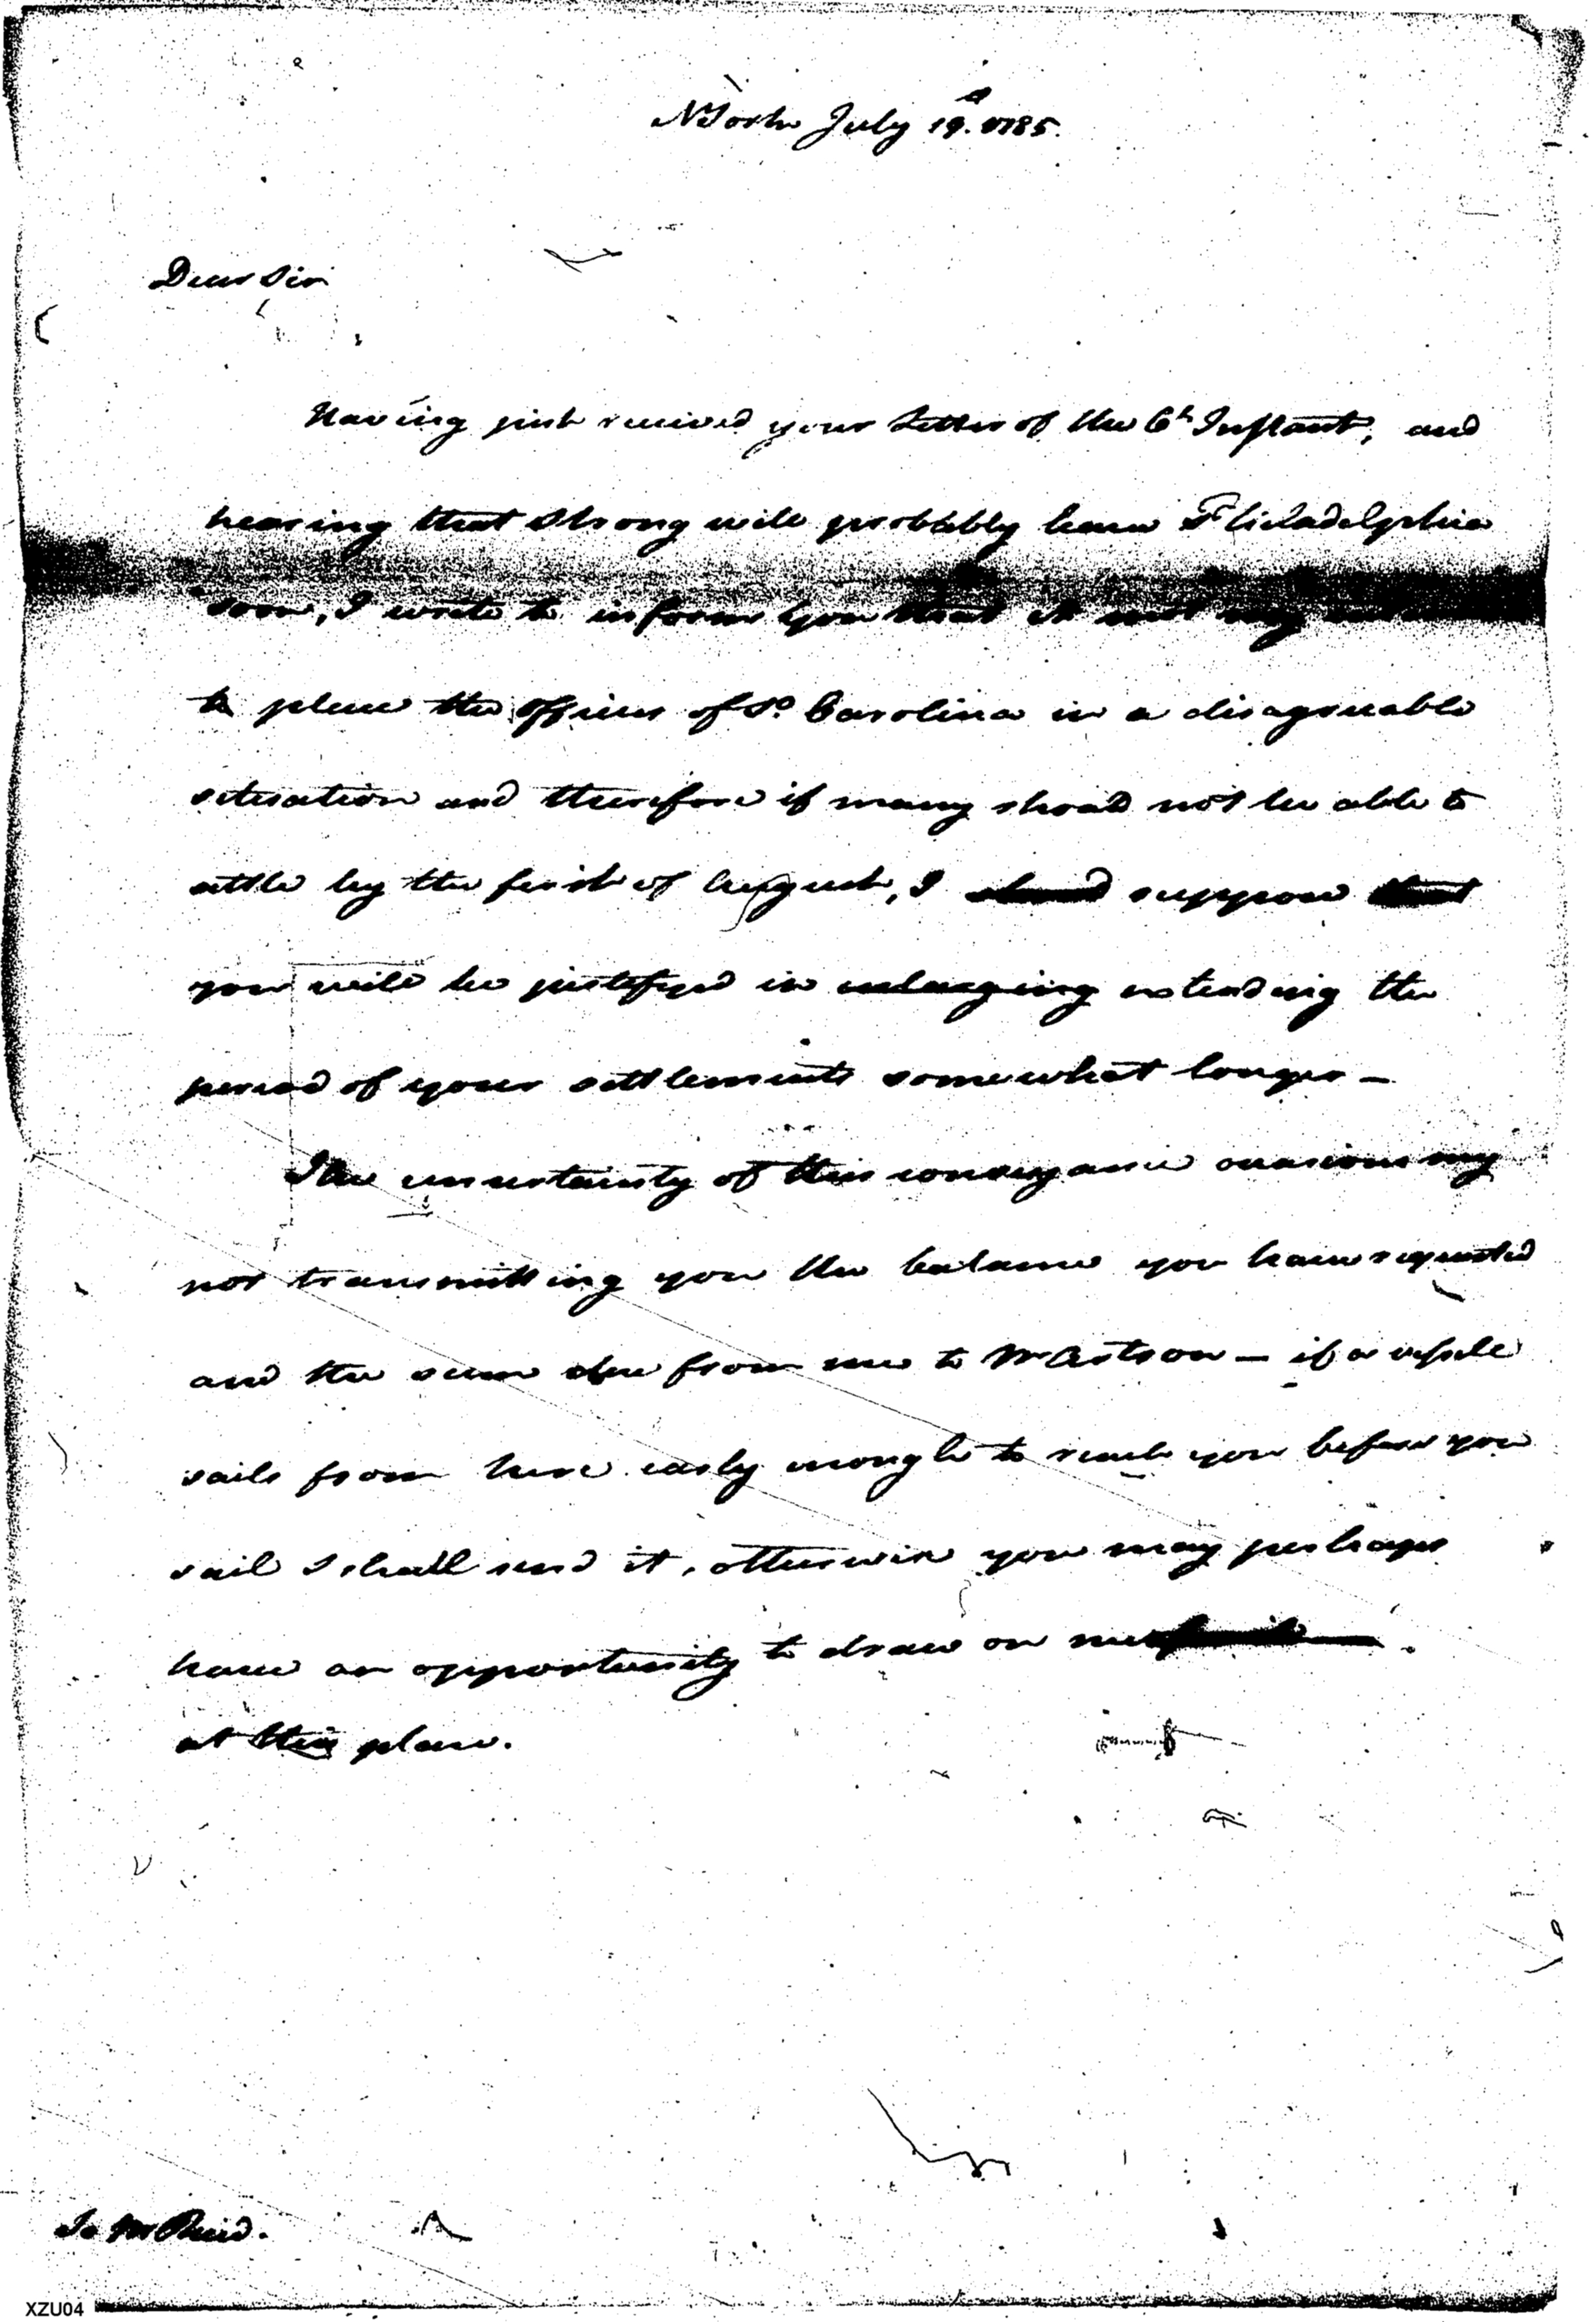 NYork July 19. 1785.
Dear Sir
Having just received your Letter of the 6th Instant, and
hearing that Strong will probably leave Philadelphia
soon, I write to inform you that it is not my
to place the officers of So. Carolina in a disagreeable
situation and therefore if many should not be able to
settle by the first of August, I suppose that
you will be justifyed in enlarging extending the
period of your settlements somewhat longer —
The uncertainty of this conveyance occasions my
not transmitting you the balance you have requested
and the sum due from me to Mr — if a vessel
sails from here early enough to reach you before you
sail I shall send it, otherwise you may perhaps
have an opportunity to draw on me
at this place.
To Mr Reid.
XZU04